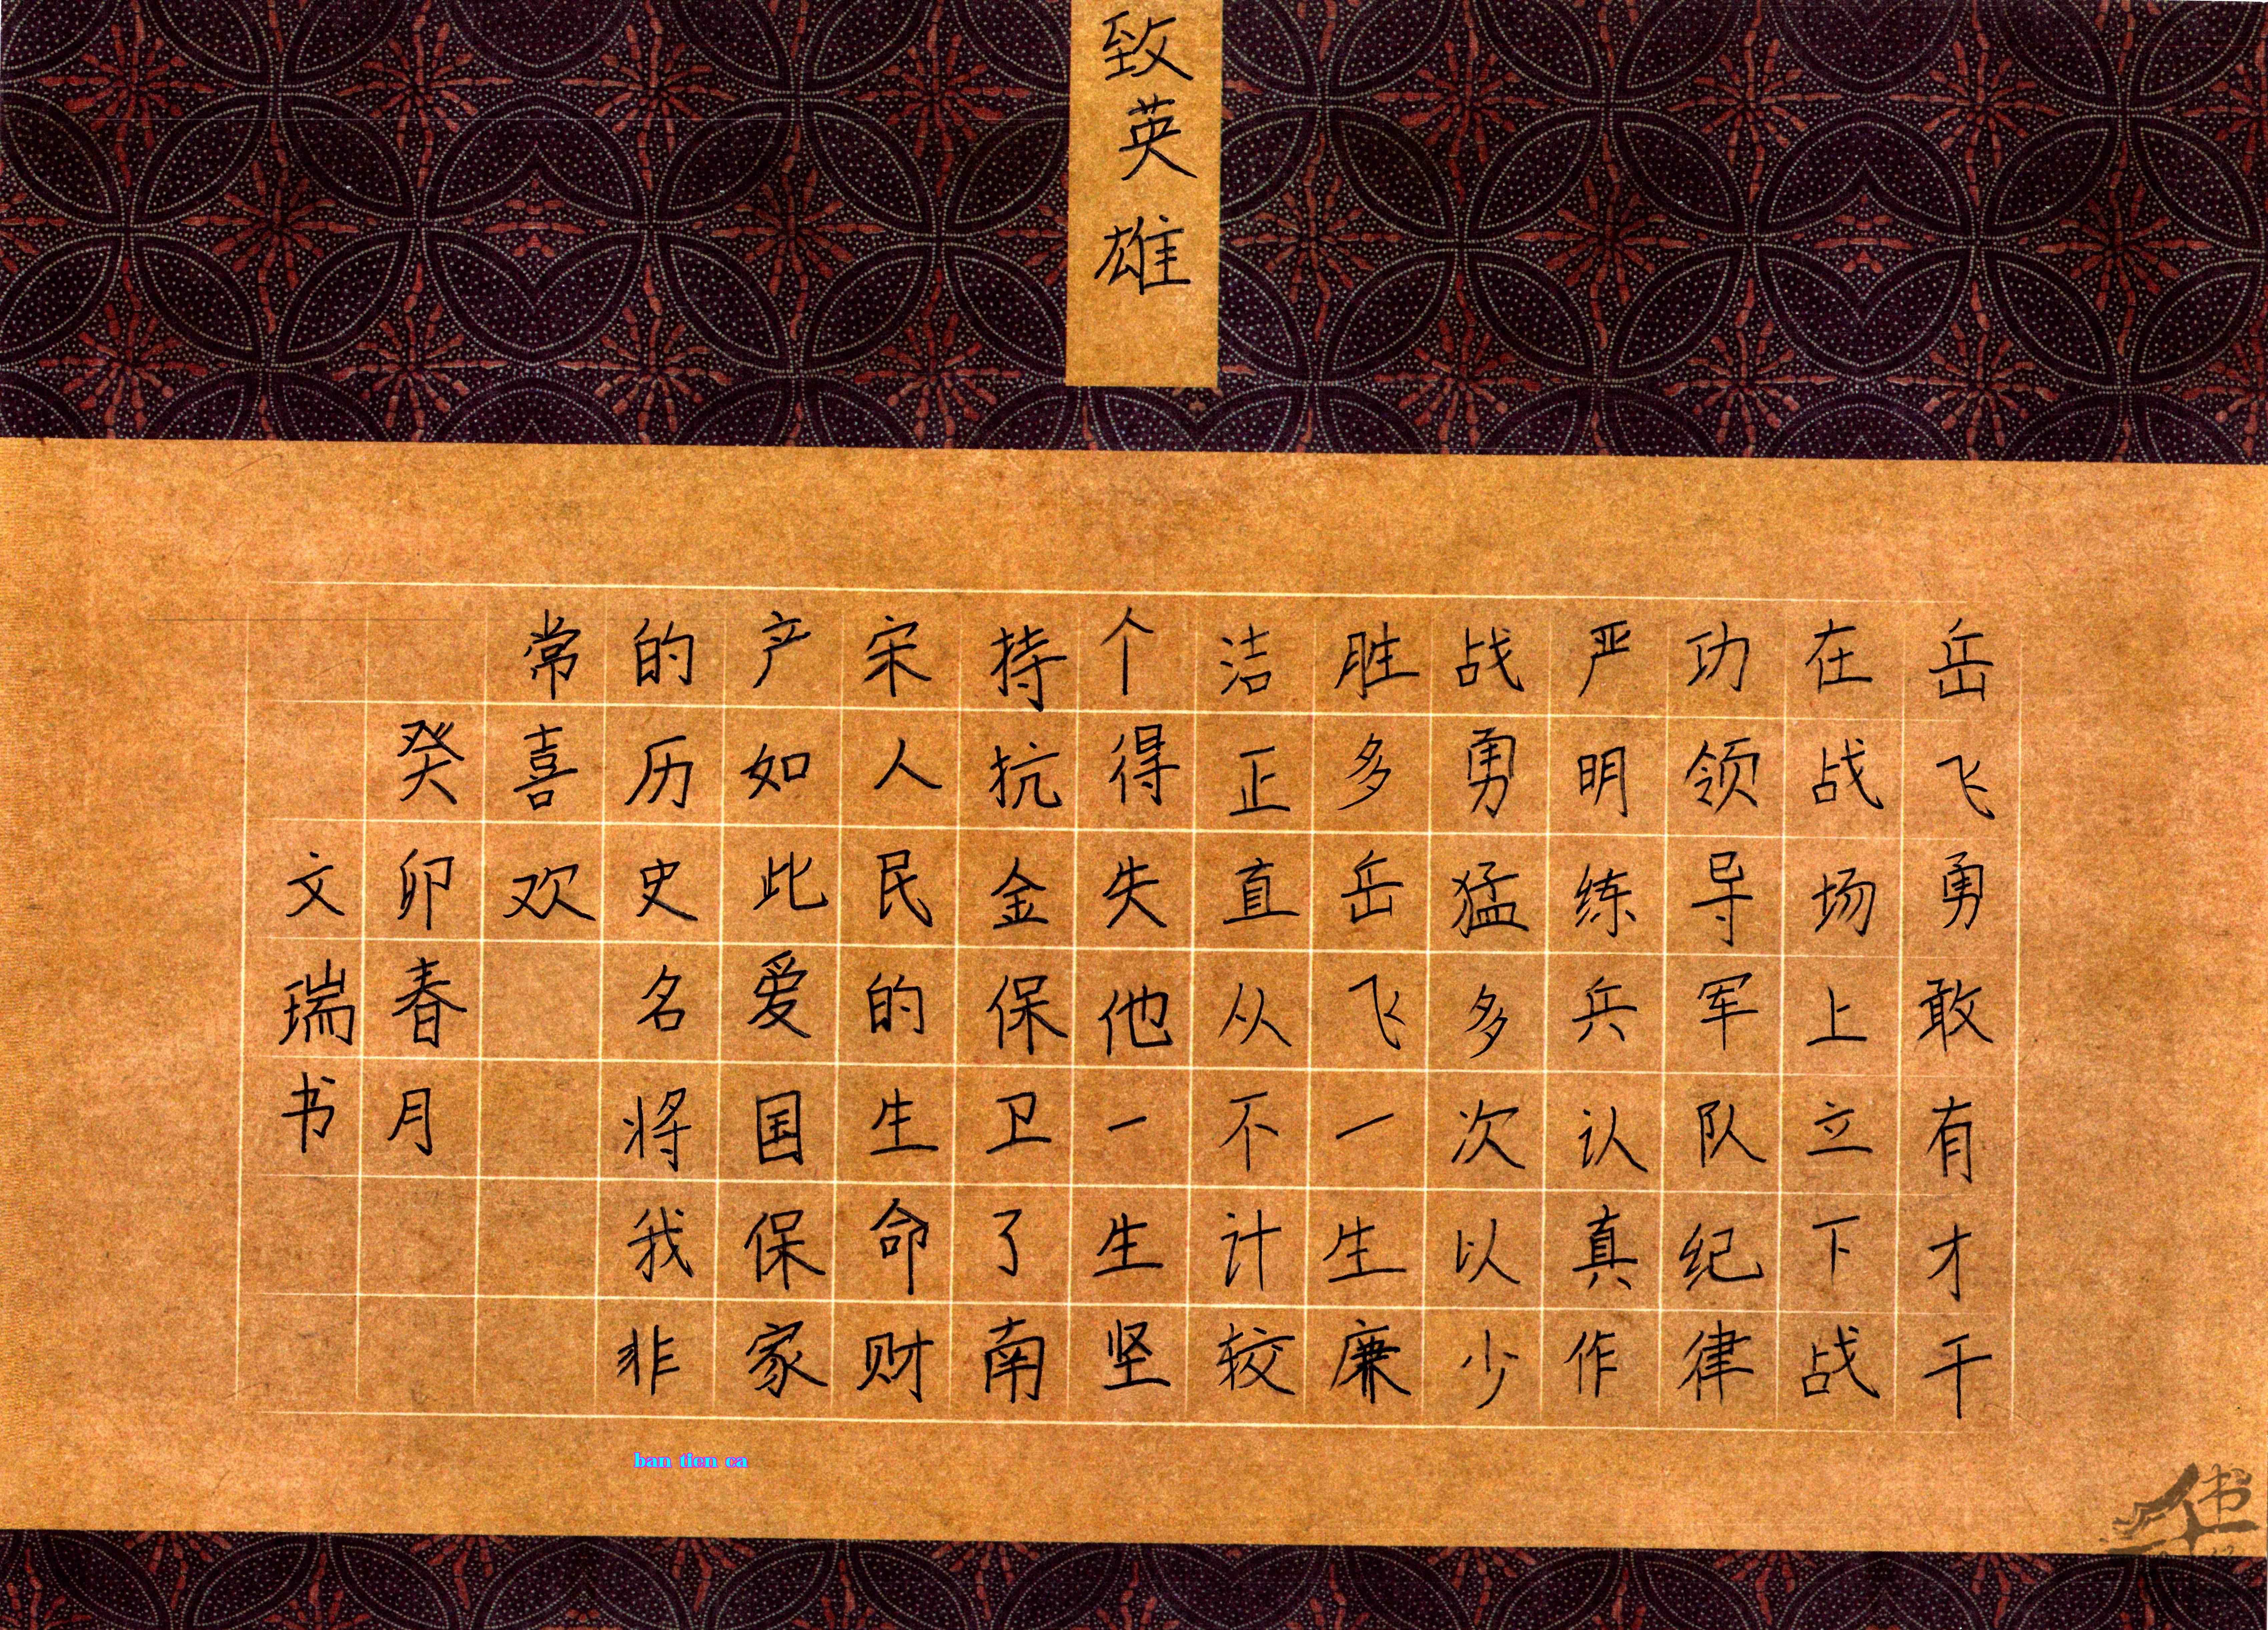 致英雄
岳飞勇敢有才干
在战场上立下战
功领导军队纪律
严明练兵认真作
战勇猛多次以少
胜多岳飞一生廉
洁正直从不计较
个得失他一生坚
持抗金保卫了南
宋人民的生命财
产如此爱国保家
的历史名将我非
常喜欢
癸卯春月
文瑞书
ban tien ca